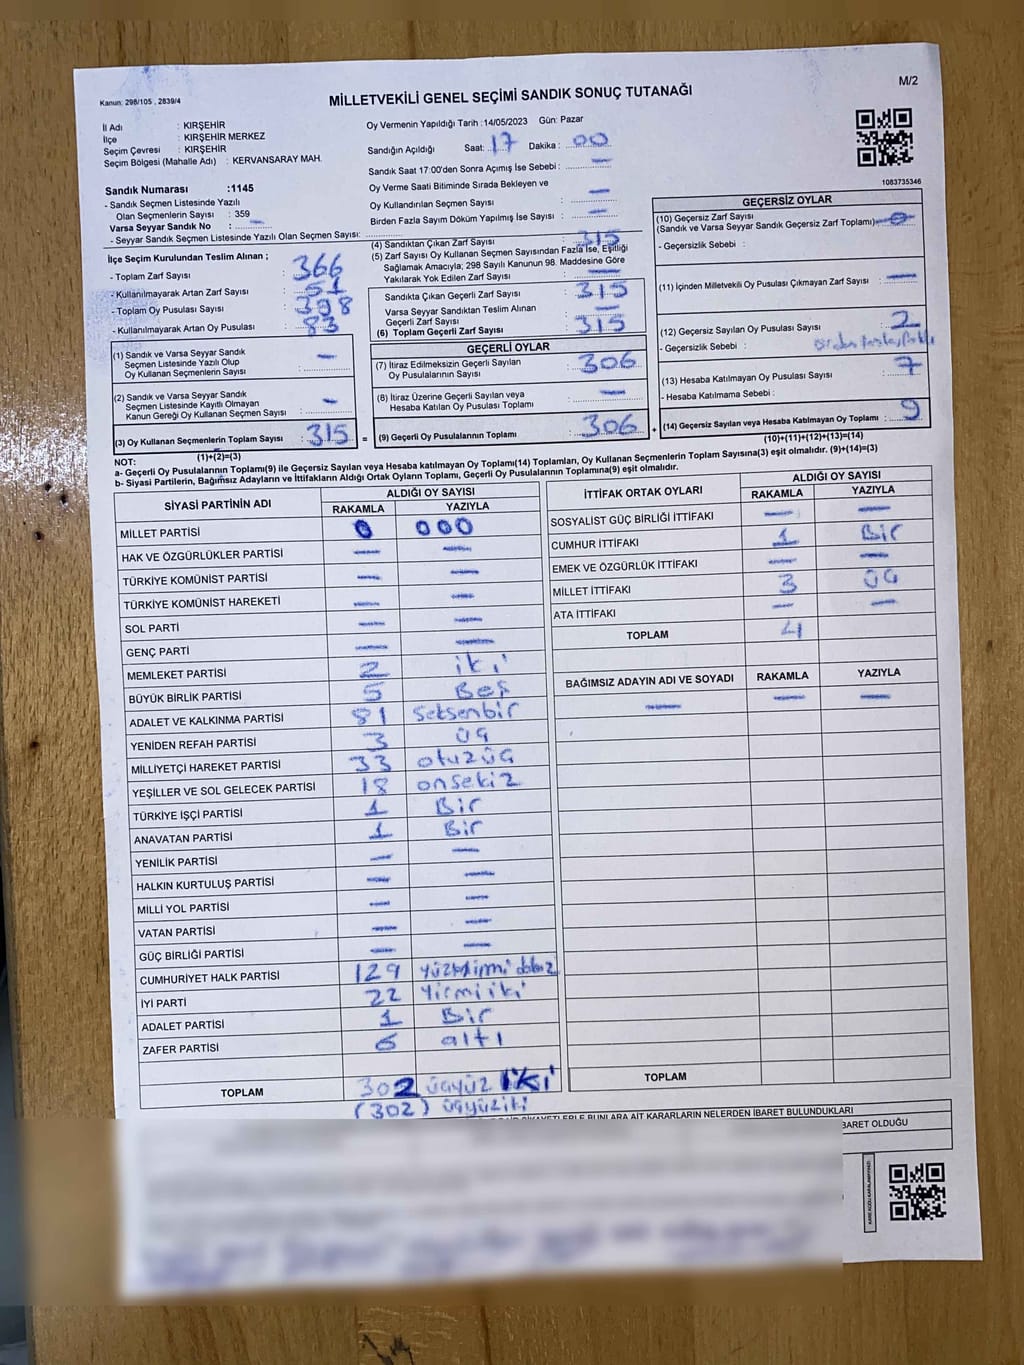 Kanun: 298/105 , 2839/4
M/2
MİLLETVEKİLİ GENEL SEÇİMİ SANDIK SONUÇ TUTANAĞI
İl Adı : KIRŞEHİR
İlçe : KIRŞEHİR MERKEZ
Seçim Çevresi : KIRŞEHİR
Seçim Bölgesi (Mahalle Adı) : KERVANSARAY MAH.
Sandık Numarası :1145
- Sandık Seçmen Listesinde Yazılı
Olan Seçmenlerin Sayısı : 359
Varsa Seyyar Sandık No : —
- Seyyar Sandık Seçmen Listesinde Yazılı Olan Seçmen Sayısı:
Oy Vermenin Yapıldığı Tarih :14/05/2023 Gün: Pazar
Sandığın Açıldığı Saat: 17 Dakika : 00
Sandık Saat 17:00'den Sonra Açımış İse Sebebi : —
Oy Verme Saati Bitiminde Sırada Bekleyen ve
Oy Kullandırılan Seçmen Sayısı : —
Birden Fazla Sayım Döküm Yapılmış İse Sayısı : —
1083735346
İlçe Seçim Kurulundan Teslim Alınan ;
- Toplam Zarf Sayısı : 366
- Kullanılmayarak Artan Zarf Sayısı : 51
- Toplam Oy Pusulası Sayısı : 398
- Kullanılmayarak Artan Oy Pusulası : 83
(1) Sandık ve Varsa Seyyar Sandık
Seçmen Listesinde Yazılı Olup
Oy Kullanan Seçmenlerin Sayısı : —
(2) Sandık ve Varsa Seyyar Sandık
Seçmen Listesinde Kayıtlı Olmayan
Kanun Gereği Oy Kullanan Seçmen Sayısı : —
(3) Oy Kullanan Seçmenlerin Toplam Sayısı : 315
(1)+(2)=(3)
(4) Sandıktan Çıkan Zarf Sayısı : 315
(5) Zarf Sayısı Oy Kullanan Seçmen Sayısından Fazla İse, Eşitliği
Sağlamak Amacıyla; 298 Sayılı Kanunun 98. Maddesine Göre
Yakılarak Yok Edilen Zarf Sayısı : —
Sandıkta Çıkan Geçerli Zarf Sayısı : 315
Varsa Seyyar Sandıktan Teslim Alınan
Geçerli Zarf Sayısı : —
(6) Toplam Geçerli Zarf Sayısı : 315
GEÇERLİ OYLAR
(7) İtiraz Edilmeksizin Geçerli Sayılan
Oy Pusulalarının Sayısı : 306
(8) İtiraz Üzerine Geçerli Sayılan veya
Hesaba Katılan Oy Pusulası Toplamı : —
= (9) Geçerli Oy Pusulalarının Toplamı : 306
GEÇERSİZ OYLAR
(10) Geçersiz Zarf Sayısı
(Sandık ve Varsa Seyyar Sandık Geçersiz Zarf Toplamı) 0
- Geçersizlik Sebebi :
(11) İçinden Milletvekili Oy Pusulası Çıkmayan Zarf Sayısı : —
(12) Geçersiz Sayılan Oy Pusulası Sayısı : 2
- Geçersizlik Sebebi : Birden fazla
(13) Hesaba Katılmayan Oy Pusulası Sayısı : 7
- Hesaba Katılmama Sebebi :
+ (14) Geçersiz Sayılan veya Hesaba Katılmayan Oy Toplamı : 9
(10)+(11)+(12)+(13)=(14)
NOT:
a- Geçerli Oy Pusulalarının Toplamı(9) ile Geçersiz Sayılan veya Hesaba katılmayan Oy Toplamı(14) Toplamları, Oy Kullanan Seçmenlerin Toplam Sayısına(3) eşit olmalıdır. (9)+(14)=(3)
b- Siyasi Partilerin, Bağımsız Adayların ve İttifakların Aldığı Ortak Oyların Toplamı, Geçerli Oy Pusulalarının Toplamına(9) eşit olmalıdır.
SİYASİ PARTİNİN ADI ALDIĞI OY SAYISI
RAKAMLA YAZIYLA
MİLLET PARTİSİ 0 000
HAK VE ÖZGÜRLÜKLER PARTİSİ — —
TÜRKİYE KOMÜNİST PARTİSİ — —
TÜRKİYE KOMÜNİST HAREKETİ — —
SOL PARTİ — —
GENÇ PARTİ — —
MEMLEKET PARTİSİ 2 iki
BÜYÜK BİRLİK PARTİSİ 5 Beş
ADALET VE KALKINMA PARTİSİ 81 Seksenbir
YENİDEN REFAH PARTİSİ 3 üç
MİLLİYETÇİ HAREKET PARTİSİ 33 otuzüç
YEŞİLLER VE SOL GELECEK PARTİSİ 18 onsekiz
TÜRKİYE İŞÇİ PARTİSİ 1 Bir
ANAVATAN PARTİSİ 1 Bir
YENİLİK PARTİSİ — —
HALKIN KURTULUŞ PARTİSİ — —
MİLLİ YOL PARTİSİ — —
VATAN PARTİSİ — —
GÜÇ BİRLİĞİ PARTİSİ — —
CUMHURİYET HALK PARTİSİ 129 yüzyirmi dokuz
İYİ PARTİ 22 Yirmiiki
ADALET PARTİSİ 1 Bir
ZAFER PARTİSİ 6 altı
TOPLAM 302 üçyüz iki
(302) üçyüziki
İTTİFAK ORTAK OYLARI ALDIĞI OY SAYISI
RAKAMLA YAZIYLA
SOSYALİST GÜÇ BİRLİĞİ İTTİFAKI — —
CUMHUR İTTİFAKI 1 Bir
EMEK VE ÖZGÜRLÜK İTTİFAKI — —
MİLLET İTTİFAKI 3 üç
ATA İTTİFAKI — —
TOPLAM 4
BAĞIMSIZ ADAYIN ADI VE SOYADI RAKAMLA YAZIYLA
— — —
TOPLAM
BUNLARA AİT KARARLARIN NELERDEN İBARET BULUNDUKLARI
BARET OLDUĞU